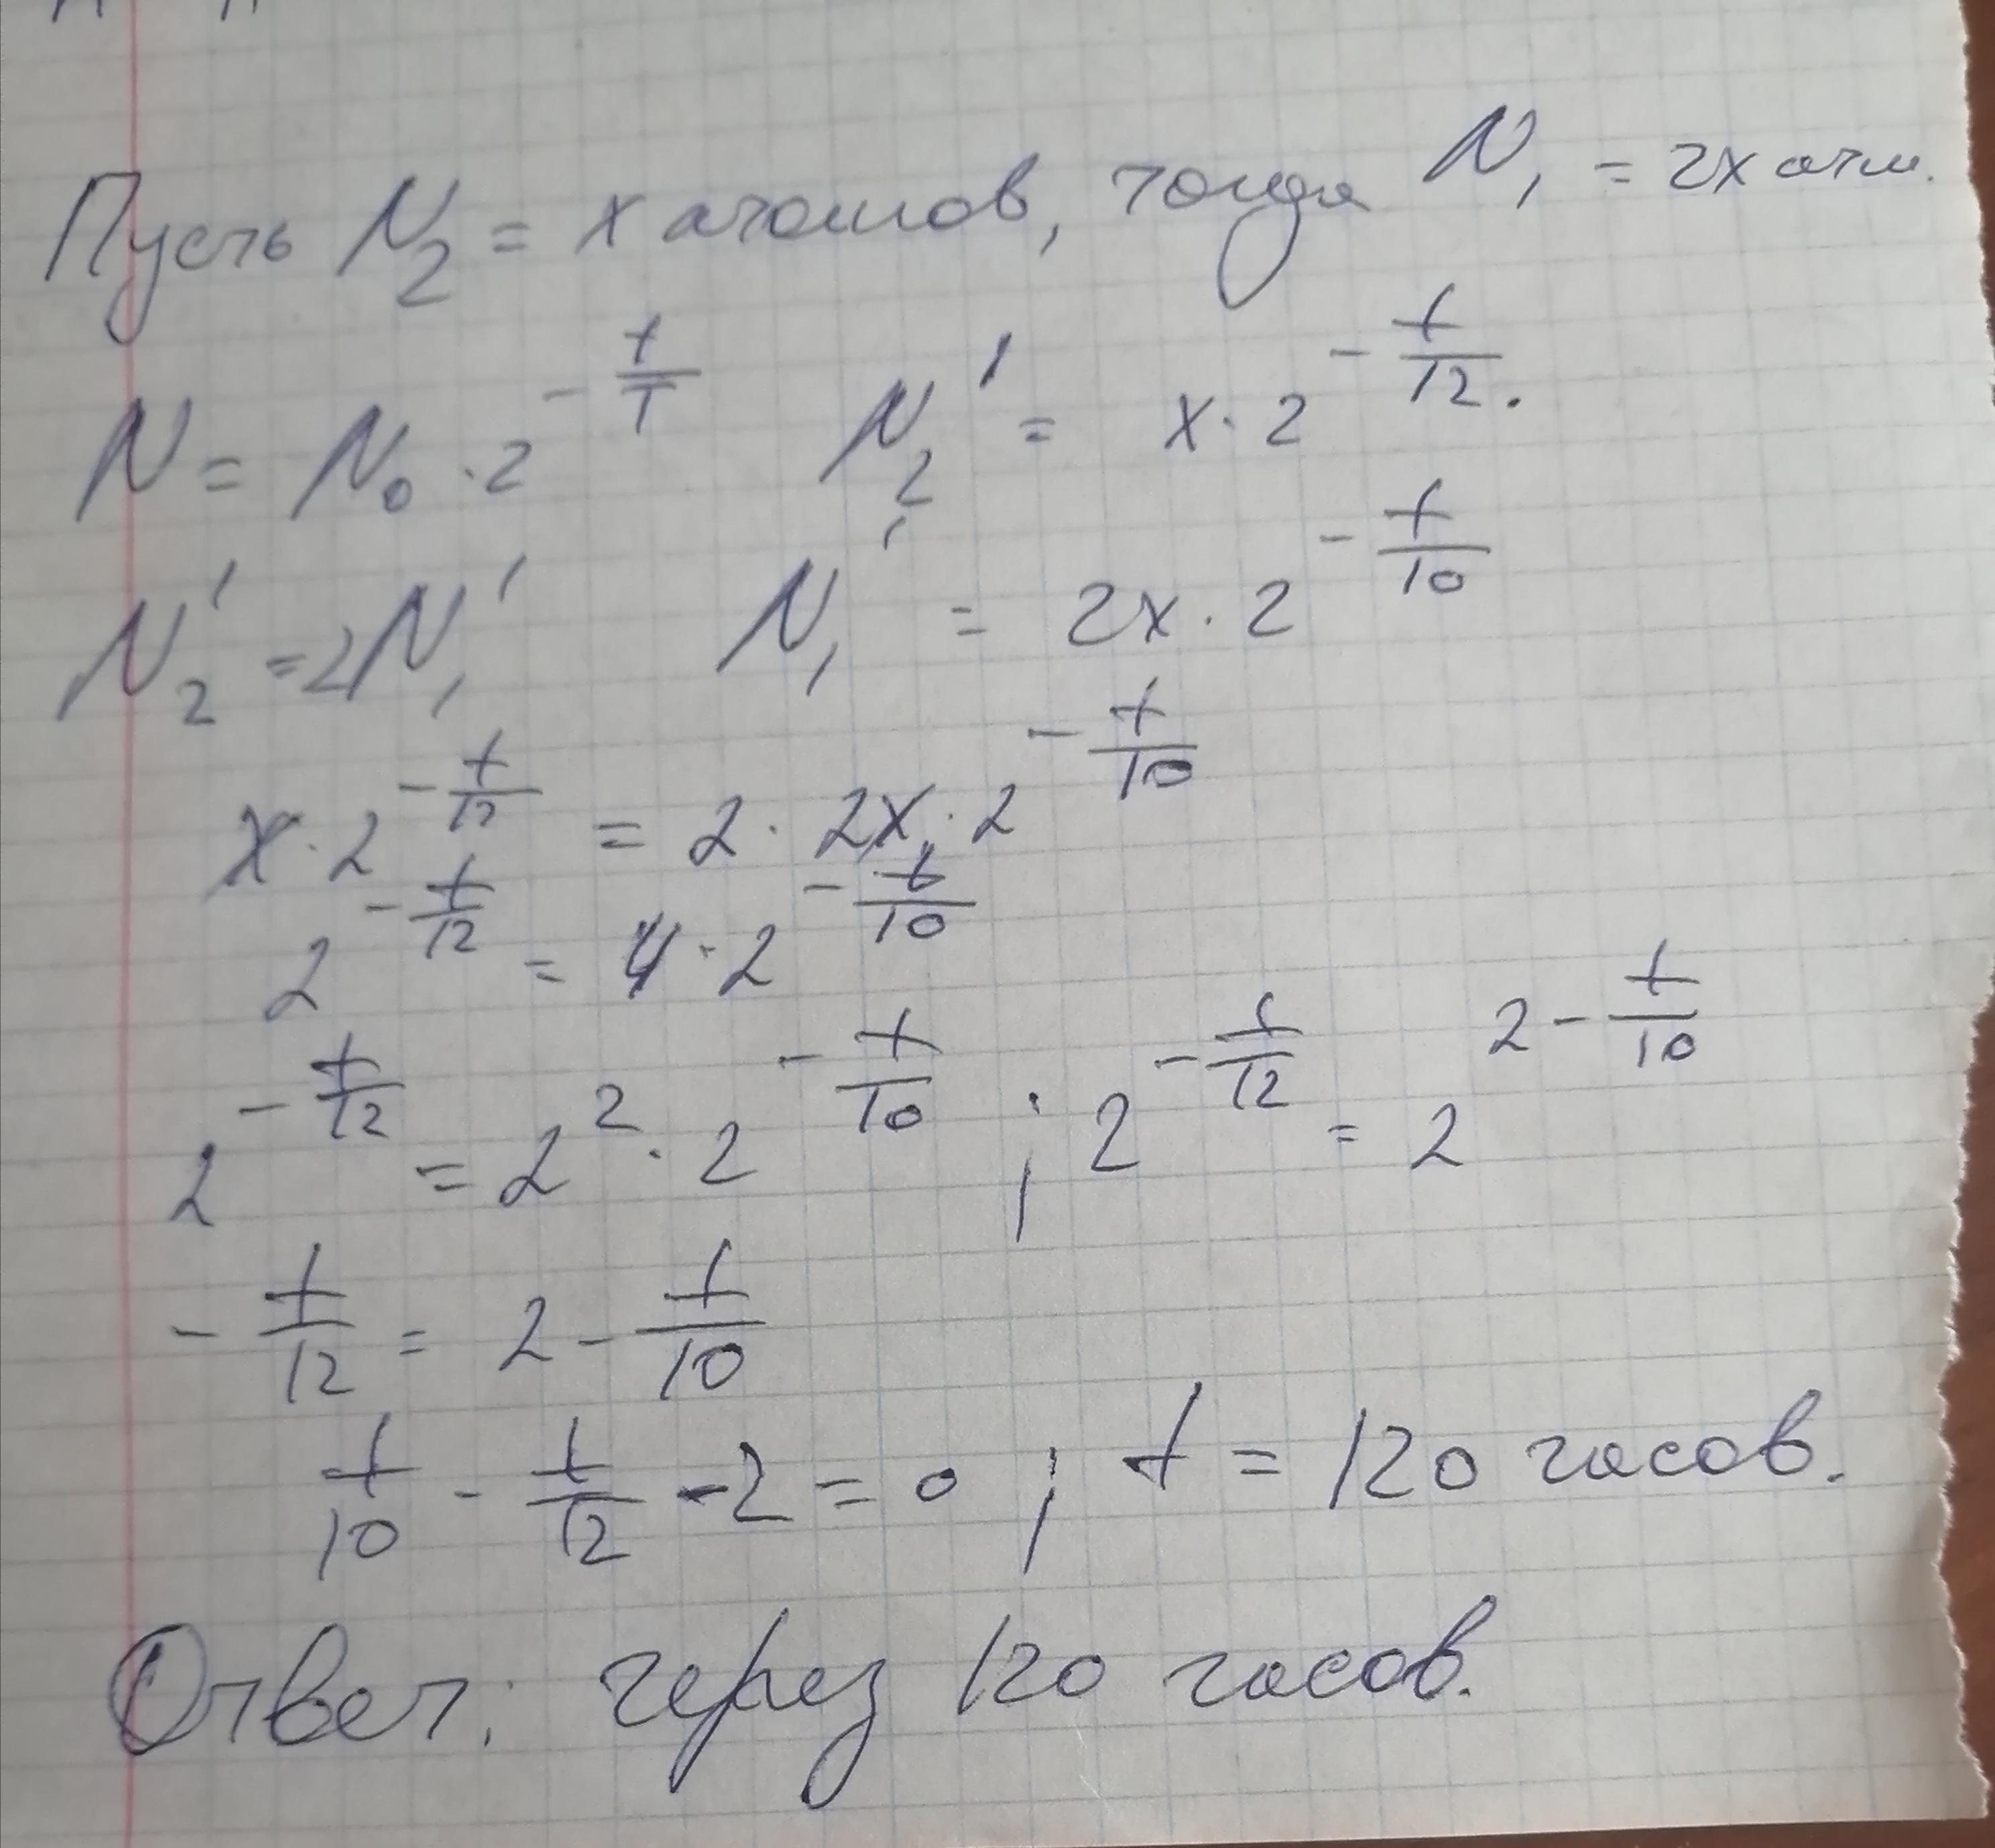 Пусть N₂ = x атомов, тогда N₁ = 2x атм.
N = N₀ · 2^(-t/T) N₂' = x · 2^(-t/12).
N₂' = 2N₁' N₁' = 2x · 2^(-t/10)
x · 2^(-t/12) = 2 · 2x · 2^(-t/10)
2^(-t/12) = 4 · 2^(-t/10)
2^(-t/12) = 2² · 2^(-t/10) ; 2^(-t/12) = 2^(2 - t/10)
- t/12 = 2 - t/10
t/10 - t/12 - 2 = 0 ; t = 120 часов.
Ответ: через 120 часов.